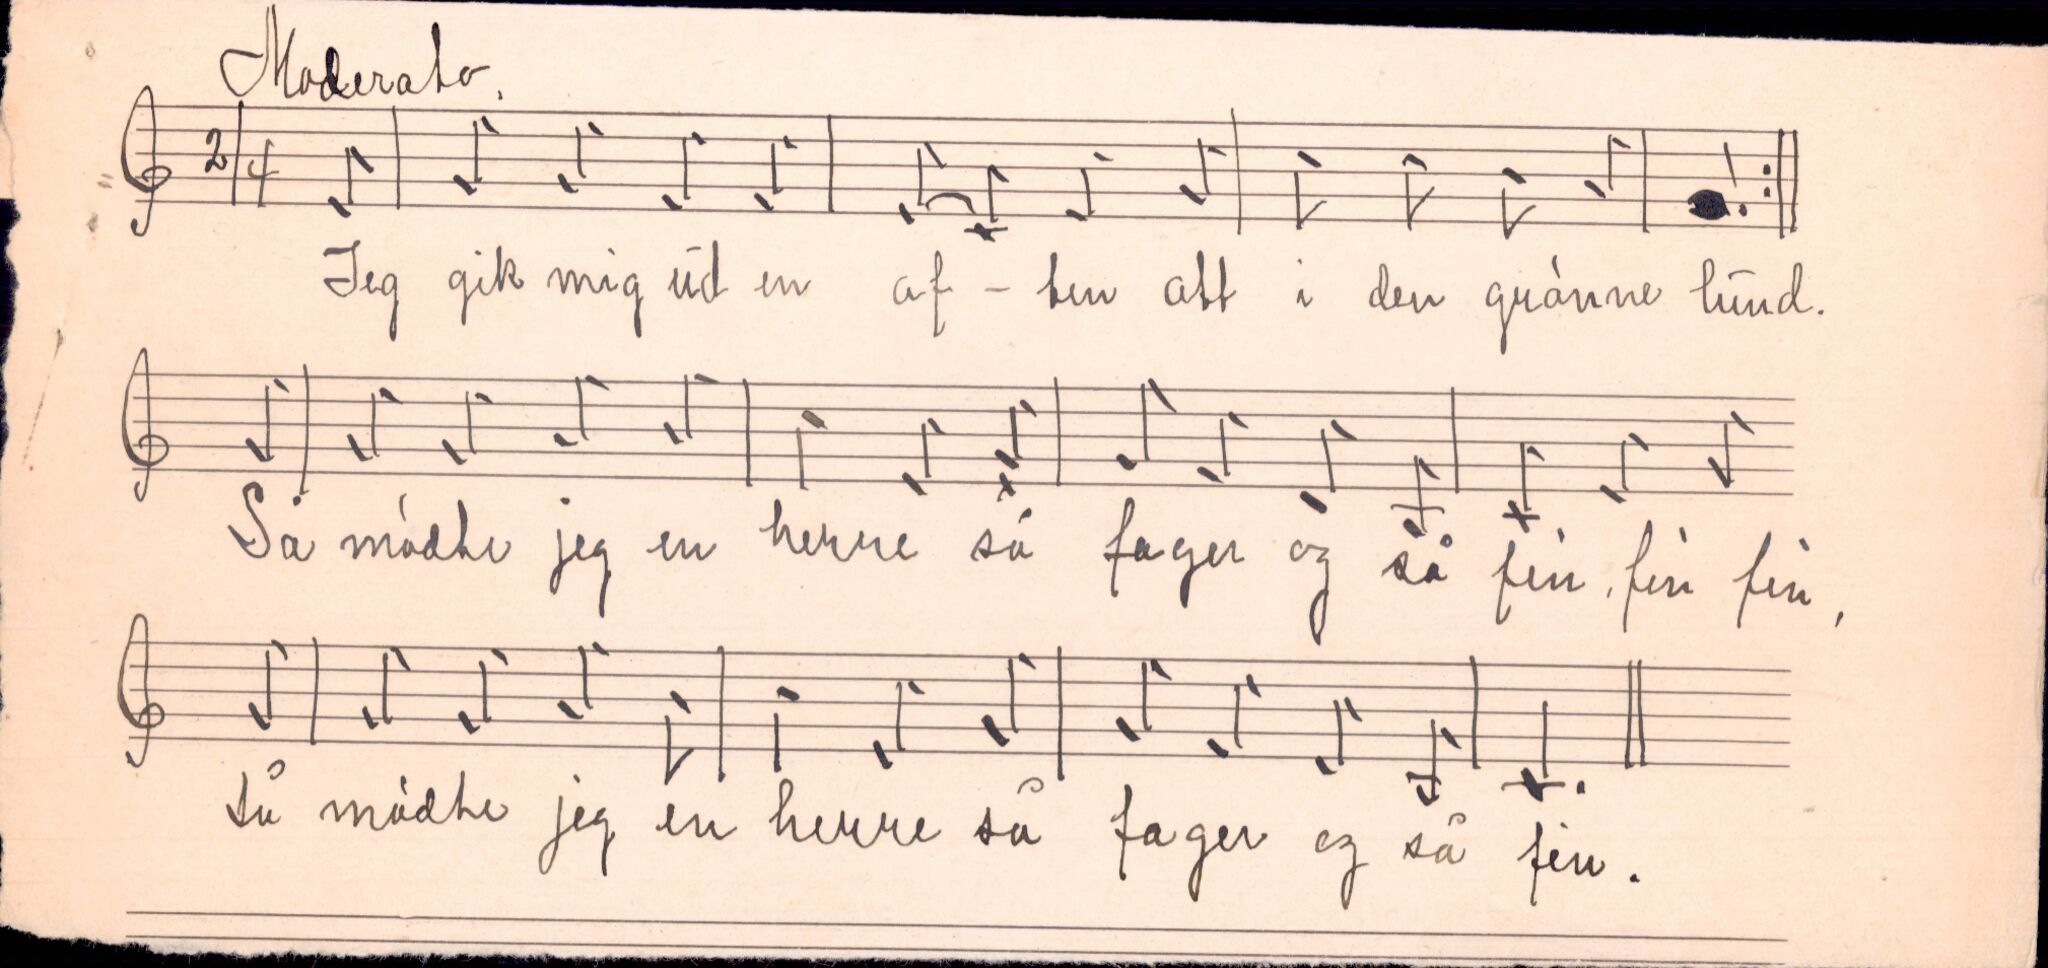 Moderato.
2/4
Jeg gik mig ud en af - ten att i den grønne lund.
Så mødte jeg en herre så fager og så fin, fin fin,
så mødte jeg en herre så fager og så fin.